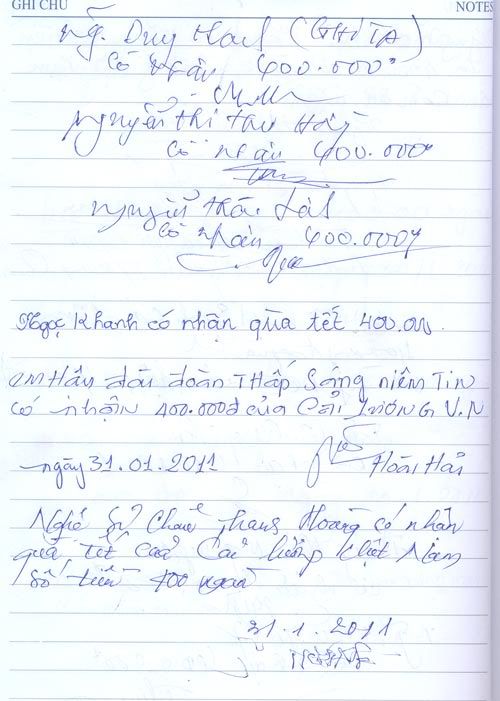 GHI CHÚ
NOTES
Ng. Duy
có nhận 400.000đ
Nguyễn thị thu
có nhận 400.000đ
Nguyễn
có nhận 400.000đ
Ngọc Khanh có nhận qùa tết 400.000
đoàn THắp Sáng niềm Tin
có nhận 400.000đ của Cải Lương V.N
ngày 31.01.2011
Hoài Hải
Nghệ Sĩ Châu Thanh Hoàng có nhận
quà Tết của Cải lương Việt Nam
số tiền 400 ngàn
31.1.2011